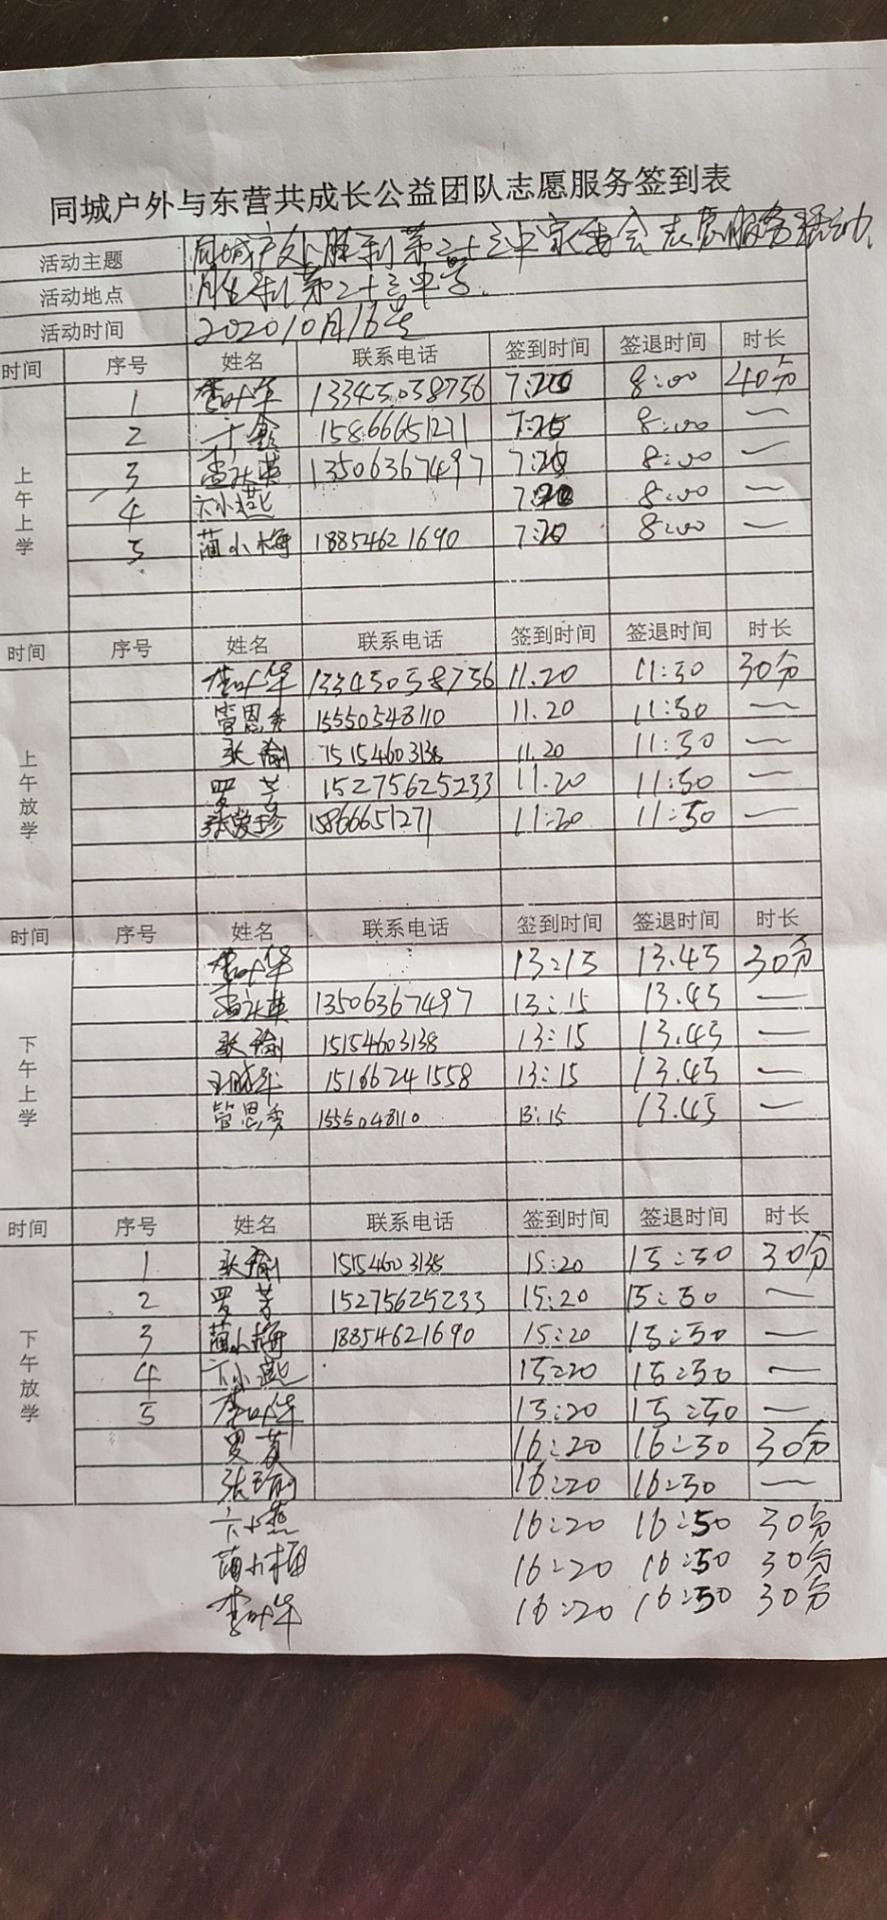 同城户外与东营共成长公益团队志愿服务签到表
活动主题 同城户外胜利第二十三中家委会志愿服务活动.
活动地点 胜利第二十三中学.
活动时间 2020 10月16号
时间 序号 姓名 联系电话 签到时间 签退时间 时长
上午上学
1 李叶华 13345058756 7:20 8:00 40分
2 15866651271 7:20 8:00 —
3 13506367497 7:20 8:00 —
4 卞小燕 7:20 8:00 —
5 蔺小梅 18854621690 7:20 8:00 —
时间 序号 姓名 联系电话 签到时间 签退时间 时长
上午放学
李叶华 13345058756 11.20 11:50 30分
管恩秀 15550548110 11.20 11:50 —
张瑜 15154603138 11.20 11:50 —
罗芳 15275625233 11.20 11:50 —
张爱珍 15866651271 11:20 11:50 —
时间 序号 姓名 联系电话 签到时间 签退时间 时长
下午上学
李叶华 13:15 13.45 30分
13506367497 13:15 13.45 —
张瑜 15154603138 13:15 13.45 —
15166241558 13:15 13.45 —
管恩秀 1555048110 13:15 13.45 —
时间 序号 姓名 联系电话 签到时间 签退时间 时长
下午放学
1 张瑜 15154603138 15:20 15:50 30分
2 罗芳 15275625233 15:20 15:50 —
3 蔺小梅 18854621690 15:20 15:50 —
4 卞小燕 15:20 15:50 —
5 李叶华 15:20 15:50 —
罗芳 16:20 16:50 30分
张瑜 16:20 16:50 —
卞小燕 16:20 16:50 30分
蔺小梅 16:20 16:50 30分
李叶华 16:20 16:50 30分